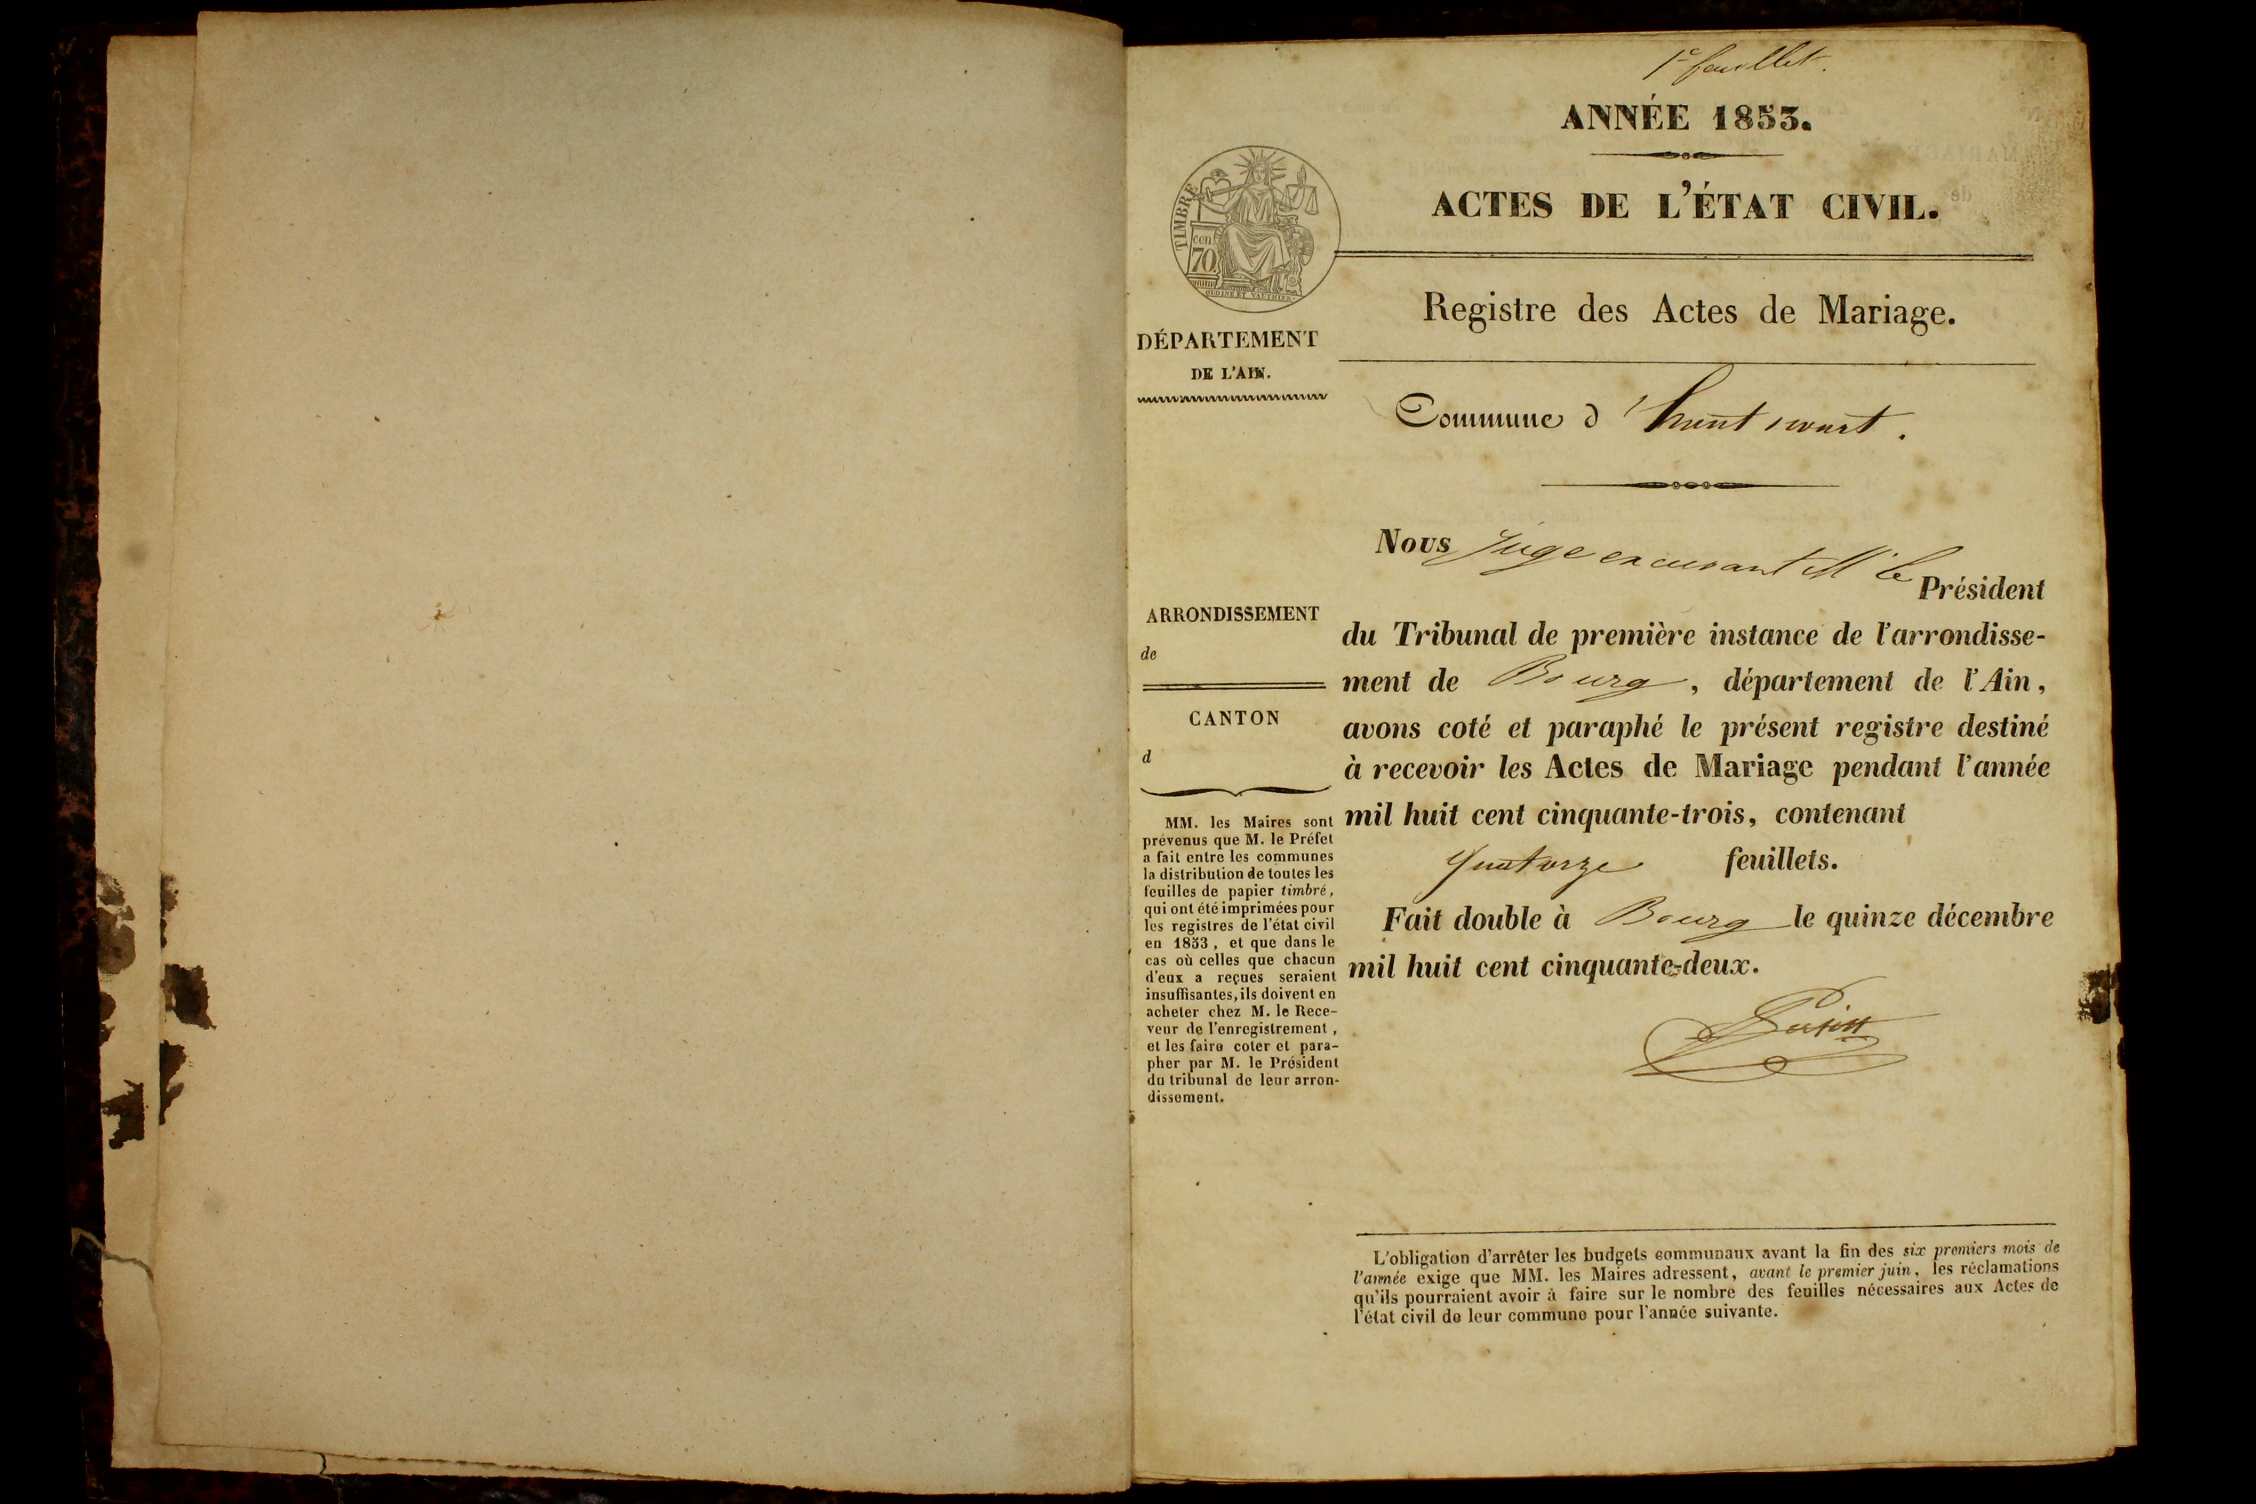 1e feuillet.
ANNÉE 1853.
ACTES DE L'ÉTAT CIVIL.
TIMBRE
cen
70
Registre des Actes de Mariage.
DÉPARTEMENT
DE L'AIN.
Commune d
Nous Juge excusant Mr le Président
du Tribunal de première instance de l'arrondisse-
ment de Bourg, département de l'Ain,
avons coté et paraphé le présent registre destiné
à recevoir les Actes de Mariage pendant l'année
mil huit cent cinquante-trois, contenant
quatorze feuillets.
Fait double à Bourg le quinze décembre
mil huit cent cinquante-deux.
ARRONDISSEMENT
de
CANTON
d
MM. les Maires sont
prévenus que M. le Préfet
a fait entre les communes
la distribution de toutes les
feuilles de papier timbré,
qui ont été imprimées pour
les registres de l'état civil
en 1853, et que dans le
cas où celles que chacun
d'eux a reçues seraient
insuffisantes, ils doivent en
acheter chez M. le Rece-
veur de l'enregistrement,
et les faire coter et para-
pher par M. le Président
du tribunal de leur arron-
dissement.
L'obligation d'arrêter les budgets communaux avant la fin des six premiers mois de
l'année exige que MM. les Maires adressent, avant le premier juin, les réclamations
qu'ils pourraient avoir à faire sur le nombre des feuilles nécessaires aux Actes de
l'état civil de leur commune pour l'année suivante.